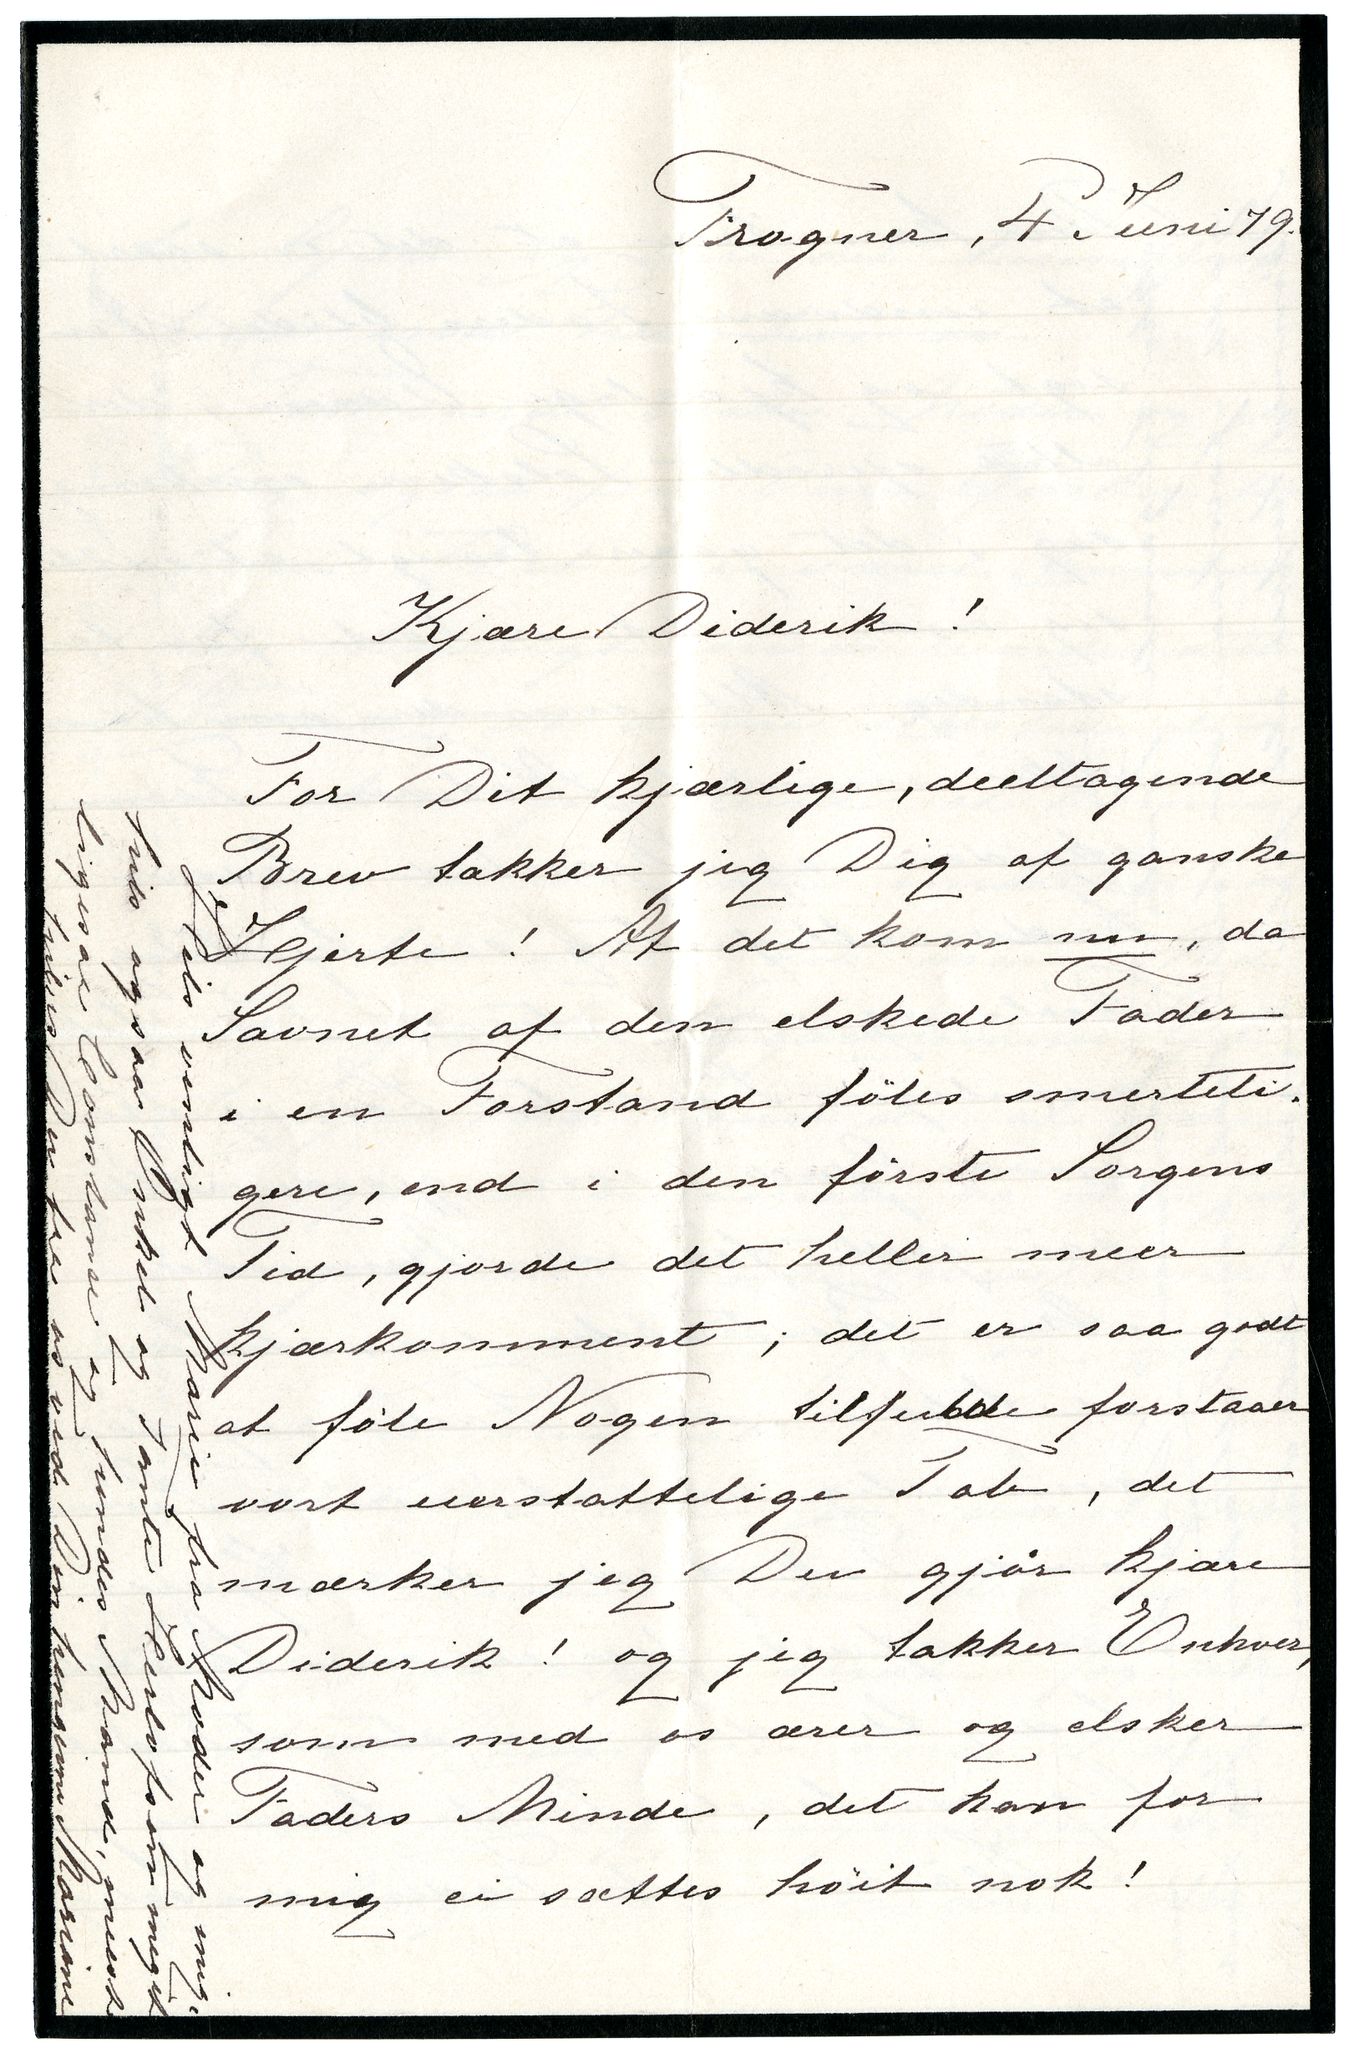 Frogner, 4 Juni 79.
Kjære Diderik!
For Dit kjærlige, deeltagende
Brev takker jeg Dig af ganske
Hjerte! At det kom nu, da
Savnet af den elskede Fader
i en Forstand föles smerteli-
gere, end i den förste Sorgens
Tid, gjorde det heller meer
kjærkomment; det er saa godt
at föle Nogen tilfulde forstaaer
vort uerstattelige Tab, det
mærker jeg Du gjör kjære
Diderik! og jeg takker Enhver,
som med os ærer og elsker
Faders Minde, det kan for
mig ei sættes höit nok!
Hils venligst Marie fra Moder og mig,
hils ogsaa Onkel og Tante Herlofson meget
ligesaa Constance og hendes Mand, meest
hilses Du fra os ved Din hengivne Mariane